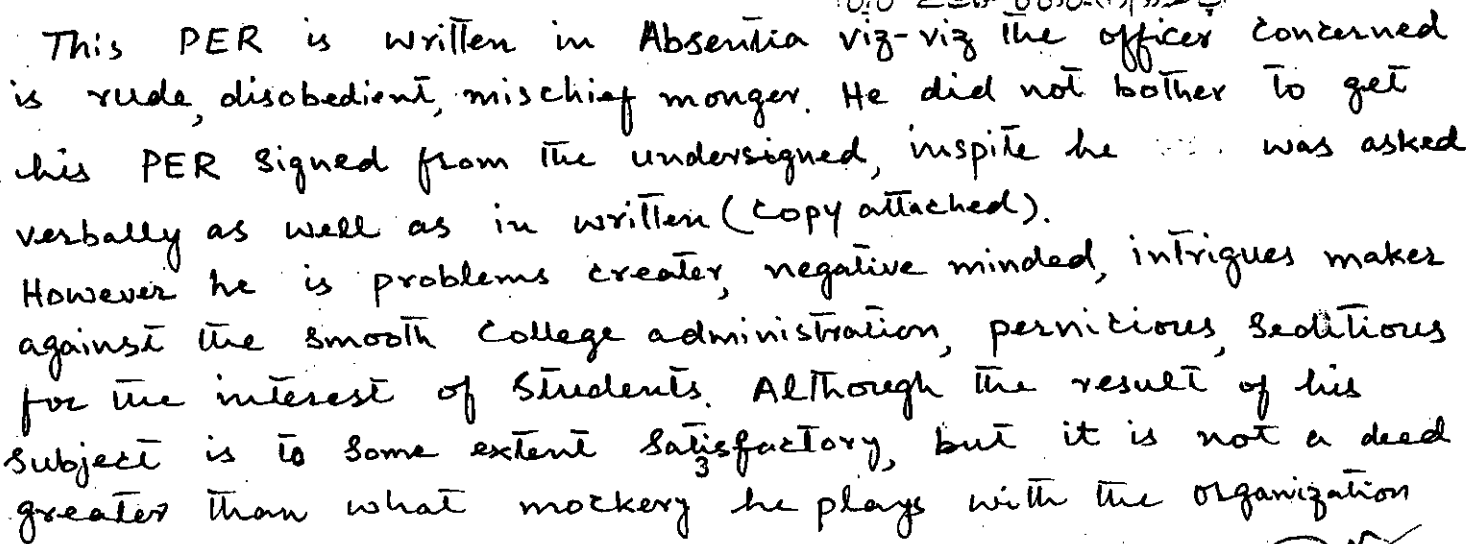 This PER is written in Absentia viz-viz the officer concerned
is rude, disobedient, mischief monger. He did not bother to get
his PER signed from the undersigned, inspite he was asked
verbally as well as in written (copy attached).
However he is problems creater, negative minded, intrigues maker
against the smooth college administration, pernicious, seditious
for the interest of students. Although the result of his
subject is to some extent satisfactory, but it is not a deed
3
greater than what mockery he plays with the organization